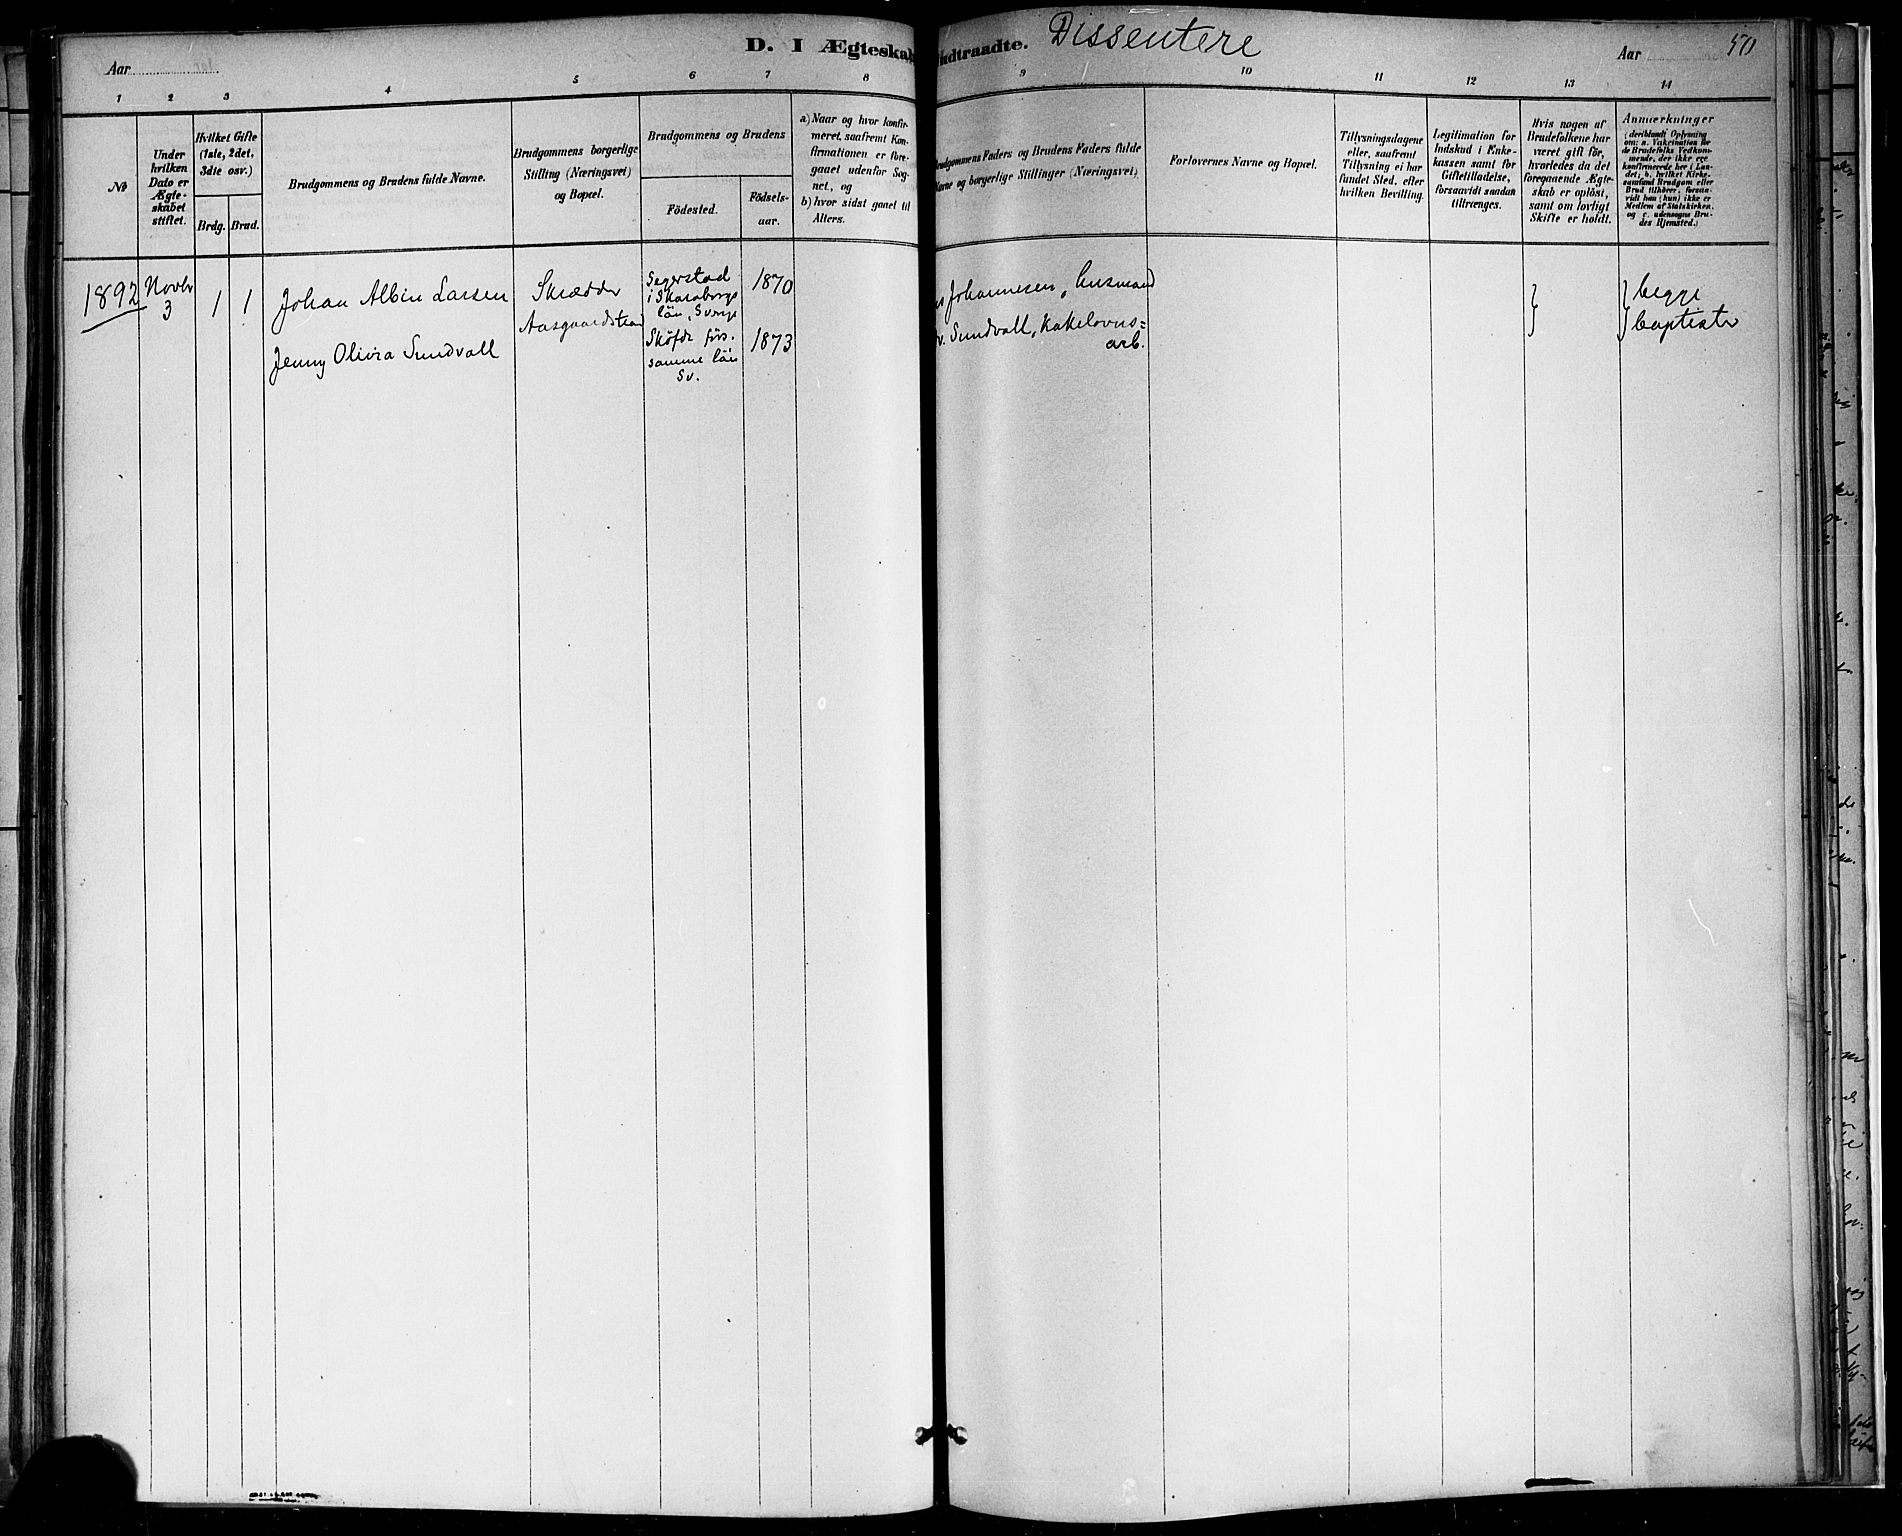 D. I Ægteskab Indtraadte. Dissentere
Aar
Aar 50
1 2 3 4 5 6 7 8 9 10 11 12 13 14
No
Under
hvilken
Dato er
Ægte-
skabet
stiftet.
Hvilket Gifte
(1ste, 2det,
3dte osv.)
Brdg. Brud.
Brudgommens og Brudens fulde Navne.
Brudgommens borgerlige
Stilling (Næringsvei)
og Bopæl.
Brudgommens og Brudens
Födested.
Födsels-
aar.
a) Naar og hvor konfir-
meret, saafremt Kon-
firmationen er fore-
gaaet udenfor Sog-
net, og
b) hvor sidst gaaet til
Alters.
Brudgommens Faders og Brudens Faders fulde
Navne og borgerlige Stillinger (Næringsvei)
Forlovernes Navne og Bopæl.
Tillysningsdagene
eller, saafremt
Tillysning ei har
fundet Sted, efter
hvilken Bevilling.
Legitimation for
Indskud i Enke-
kassen samt for
Giftetilladelse,
forsaavidt saadan
tiltrænges.
Hvis nogen af
Brudefolkene har
været gift för,
hvorledes da det
foregaaende Ægte-
skab er oplöst,
samt om lovligt
Skifte er holdt.
Anmærkninger
(deriblandt Oplysning
om: a. Vakcination for
de Brudefolks Vedkom-
mende, der ikke ere
konfirmerede her i Lan-
det; b. hvilket Kirke-
samfund Brudgom eller
Brud tilhører, forsaa-
vidt han (hun) ikke er
Medlem af Statskirken,
og c. udensogns Bru-
des Hjemsted.)
1892 Novbr
3
1 1
Johan Albin Larsen
Jenny Olivia Sundvall
Skrædder
Aasgaardstrand
Segerstad
i Skaraborgs
län, Sverge
1870
Sköfde förs.
samme län
Sv.
1873
Johannesen, Husmand
Sundvall, Kakelovns=
arb.
begge
baptister